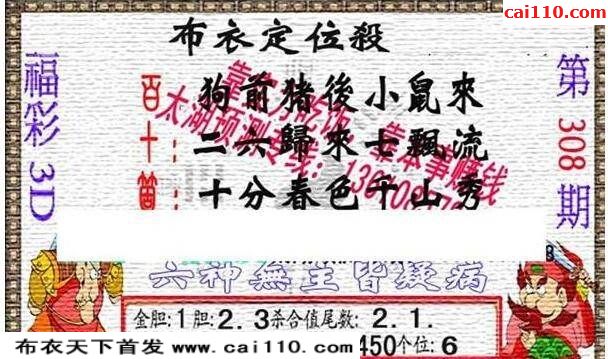 彩票网
cai110.com
布衣定位殺
福彩3D
第308期
百:狗前猪後小鼠來
十:二六歸來七飄流
箇:十分春色千山秀
太湖预测专线:
靠本事赚钱
六神無主皆疑病
金胆:1胆:2.3杀合值尾数:2.1.
450个位:6
布衣天下首发 www.cai110.com